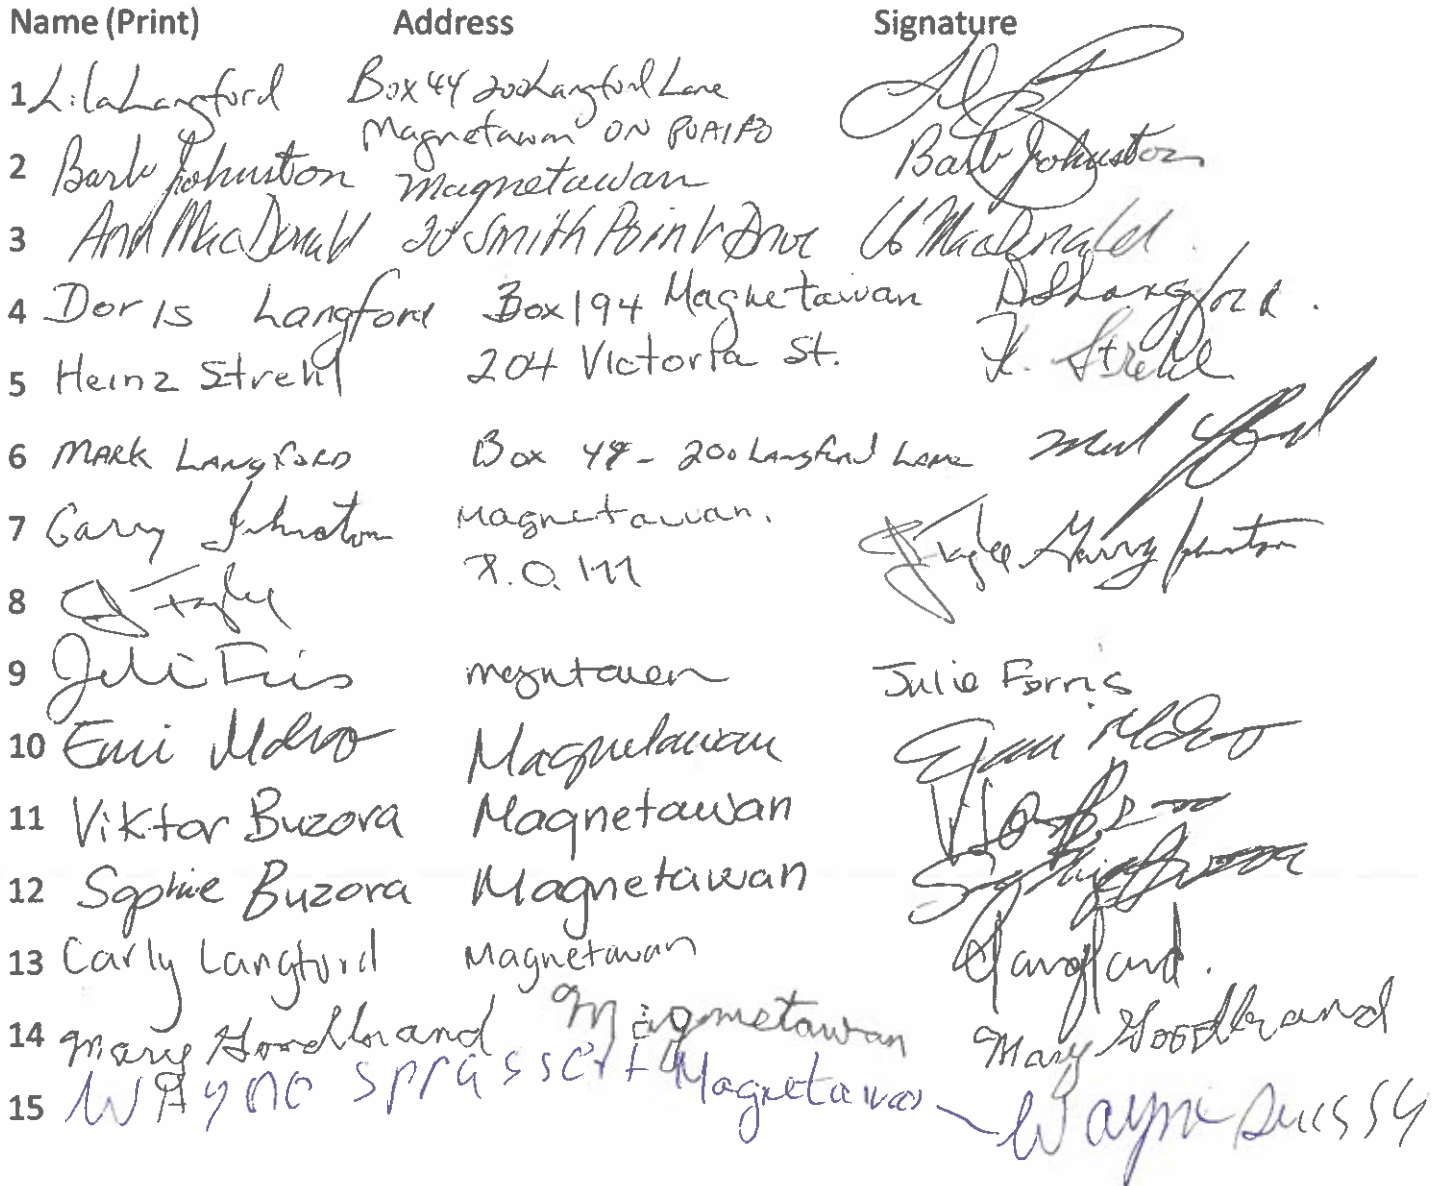 Name (Print) Address Signature
1 Lila Langford Box 44 200 Langford Lane
Magnetawan ON P0A1P0
2 Barb Johnston Magnetawan Barb Johnston
3 Ann MacDonald 20 Smith Point Drive MacDonald
4 Doris Langford Box 194 Magnetawan Langford.
5 Heinz Strehl 204 Victoria St. H. Strehl
6 MARK LANGFORD Box 44 - 200 Langford Lane
7 Garry Johnston Magnetawan. Garry Johnston
8 P.O.
9 Magntawen Julie Forris
10 Magnetawan
11 Viktor Buzora Magnetawan
12 Sophie Buzora Magnetawan
13 Carly Langford Magnetawan Langford.
14 Mary Goodbrand Magnetawan Mary Goodbrand
15 WAyne Sprassert Magnetawan Wayne